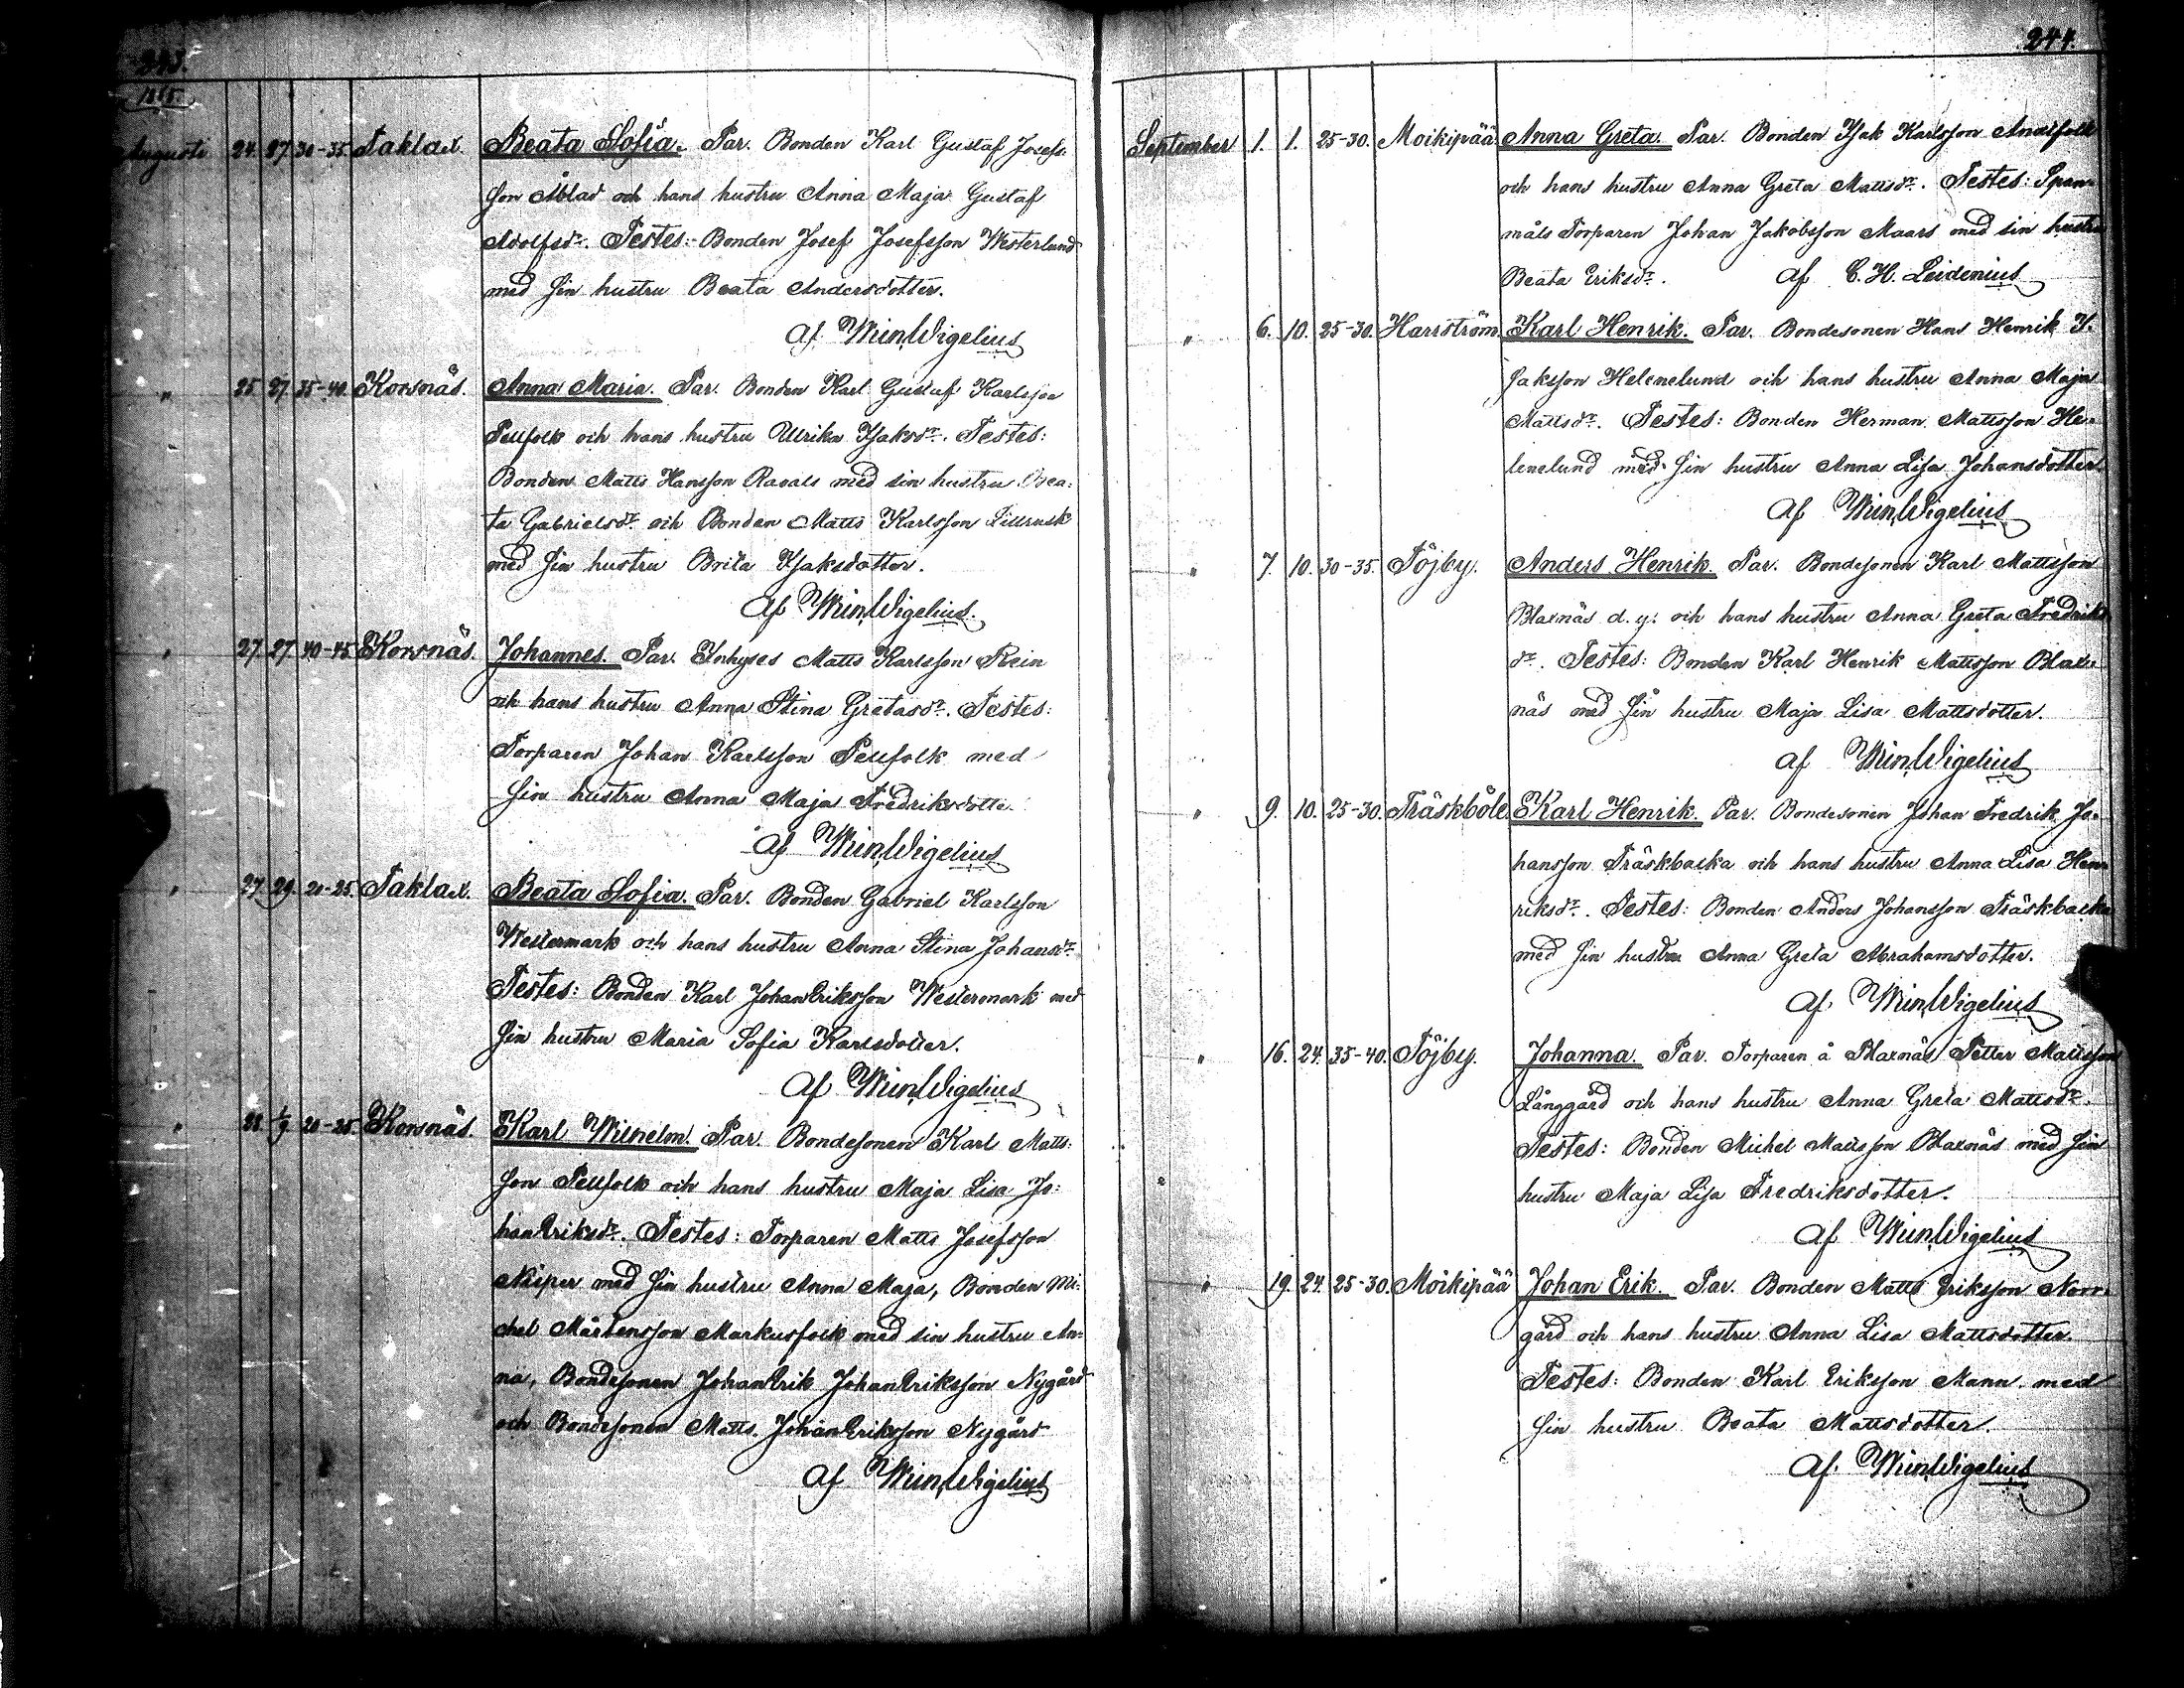 243.
1865.
Augusti 24. 27. 30-35. Taklax. Beata Sofia. Par. Bonden Karl Gustaf Josefs-
son Åblad och hans hustru Anna Maja Gustaf
Adolfsdr. Testes: Bonden Josef Josefsson Westerlund
med sin hustru Beata Andersdotter.
af Wigelius
" 25. 27. 35-40. Korsnäs. Anna Maria. Par. Bonden Karl Gustaf Karlsson
Pellfolk och hans hustru Ulrika Isaksdr. Testes:
Bonden Matts Hansson Ravals med sin hustru Bea-
ta Gabrielsdr. och Bonden Matts Karlsson
med sin hustru Brita Isaksdotter.
af Wigelius.
" 27. 27. 40-45. Korsnäs. Johannes. Par. Inhyses Matts Karlsson Rein
och hans hustru Anna Stina Gretasdr. Testes:
Torparen Johan Karlsson Pellfolk med
sin hustru Anna Maja Fredriksdotte
af Wigelius
" 27. 29. 20-25. Taklax. Beata Sofia. Par. Bonden Gabriel Karlsson
Westermark och hans hustru Anna Stina Johansdr.
Testes: Bonden Karl Johan Eriksson Westermark med
sin hustru Maria Sofia Karlsdotter.
af Wigelius
" 28. 1/9 20-25. Korsnäs. Karl Wilhelm. Par. Bondesonen Karl Matts-
son Pellfolk och hans hustru Maja Lisa Jo-
han Eriksdr. Testes: Torparen Matts Josefsson
med sin hustru Anna Maja, Bonden Mi-
chel Mårtensson Markusfolk med sin hustru An-
na, Bondesonen Johan Erik Johan Eriksson Nygård
och Bondesonen Matts Johan Eriksson Nygård
af Wigelius
244.
September 1. 1. 25-30. Moikipää Anna Greta. Par. Bonden Isak Karlsson
och hans hustru Anna Greta Mattsdr. Testes: Span-
måls Torparen Johan Jakobsson Maars med sin hustru
Beata Eriksdr. af C. H. Leidenius
" 6. 10. 25-30. Harrström Karl Henrik. Par. Bondesonen Hans Henrik I-
saksson Helenelund och hans hustru Anna Maja
Mattsdr. Testes: Bonden Herman Mattsson He-
lenelund med sin hustru Anna Lisa Johansdotter
af Wigelius
" 7. 10. 30-35. Töjby. Anders Henrik. Par. Bondesonen Karl Mattsson
Blaxnäs d. y. och hans hustru Anna Greta Fredriks
dr. Testes: Bonden Karl Henrik Mattsson Blax-
näs med sin hustru Maja Lisa Mattsdotter.
af Wigelius
" 9. 10. 25-30. Träskböle Karl Henrik. Par. Bondesonen Johan Fredrik Jo-
hansson Träskbacka och hans hustru Anna Lisa Hen
riksdr. Testes: Bonden Anders Johansson Träskbacka
med sin hustru Anna Greta Abrahamsdotter.
af Wigelius
" 16. 24. 35-40. Töjby. Johanna. Par. Torparen å Blaxnäs Petter Mattsson
Långgård och hans hustru Anna Greta Mattsdr.
Testes: Bonden Michel Mattsson Blaxnäs med sin
hustru Maja Lisa Fredriksdotter.
af Wigelius
" 19. 24. 25-30. Moikipää Johan Erik. Par. Bonden Matts Eriksson Norr-
gård och hans hustru Anna Lisa Mattsdotter.
Testes: Bonden Karl Eriksson Mann med
sin hustru Beata Mattsdotter.
af Wigelius